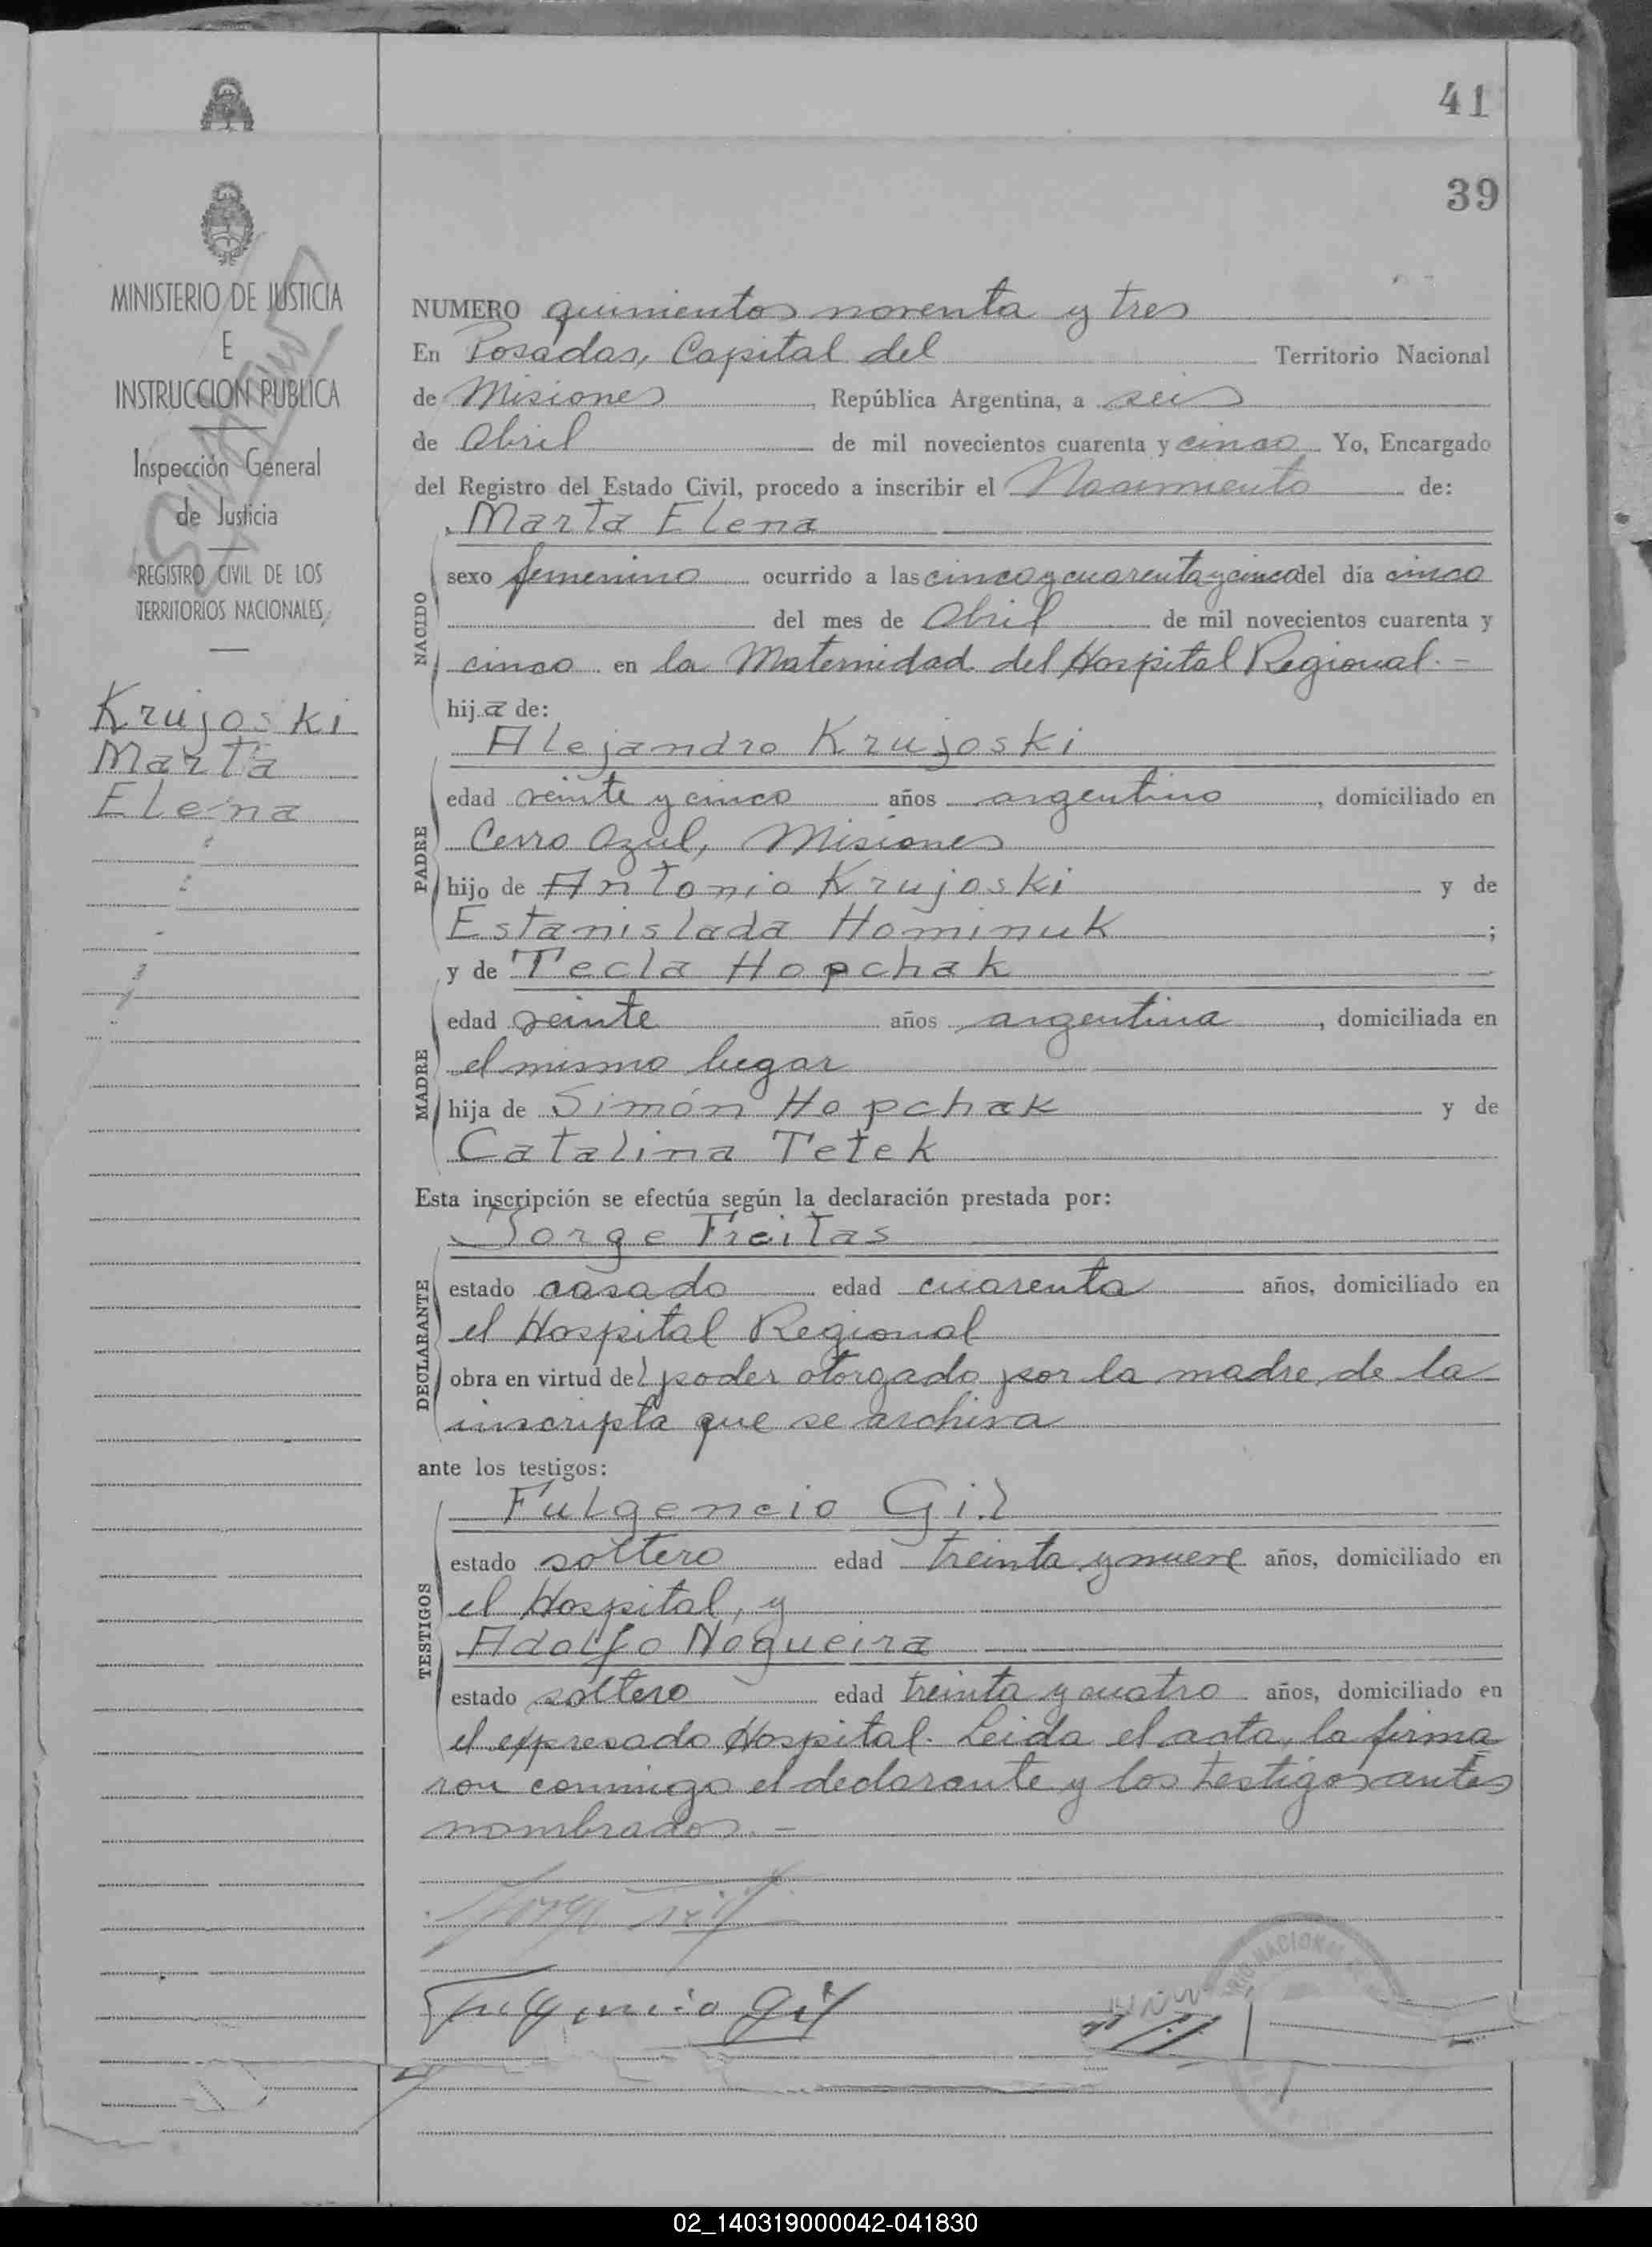 41
39
MINISTERIO DE JUSTICIA
E
INSTRUCCION PUBLICA
Inspección General
de Justicia
REGISTRO CIVIL DE LOS
TERRITORIOS NACIONALES
Krujoski
Marta
Elena
NUMERO quinientos noventa y tres
En Posadas, Capital del Territorio Nacional
de Misiones, República Argentina, a seis
de Abril de mil novecientos cuarenta y cinco Yo, Encargado
del Registro del Estado Civil, procedo a inscribir el Nacimiento de:
Marta Elena
NACIDO
sexo femenino ocurrido a las cinco y cuarenta y cinco del día cinco
del mes de Abril de mil novecientos cuarenta y
cinco en la Maternidad del Hospital Regional.-
hija de:
Alejandro Krujoski
PADRE
edad veinte y cinco años argentino, domiciliado en
Cerro Azul, Misiones
hijo de Antonio Krujoski y de
Estanislada Hominuk;
y de Tecla Hopchak
MADRE
edad veinte años argentina, domiciliada en
el mismo lugar
hija de Simón Hopchak y de
Catalina Tetek
Esta inscripción se efectúa según la declaración prestada por:
Jorge Freitas
DECLARANTE
estado casado edad cuarenta años, domiciliado en
el Hospital Regional
obra en virtud del poder otorgado por la madre de la
inscripta que se archiva
ante los testigos:
Fulgencio Gil
TESTIGOS
estado soltero edad treinta y nueve años, domiciliado en
el Hospital, y
Adolfo Nogueira
estado soltero edad treinta y cuatro años, domiciliado en
el expresado Hospital. Leida el acta, la firma
ron conmigo el declarante y los testigos antes
nombrados.-
Fulgencio Gil
NACIONAL
02_140319000042-041830